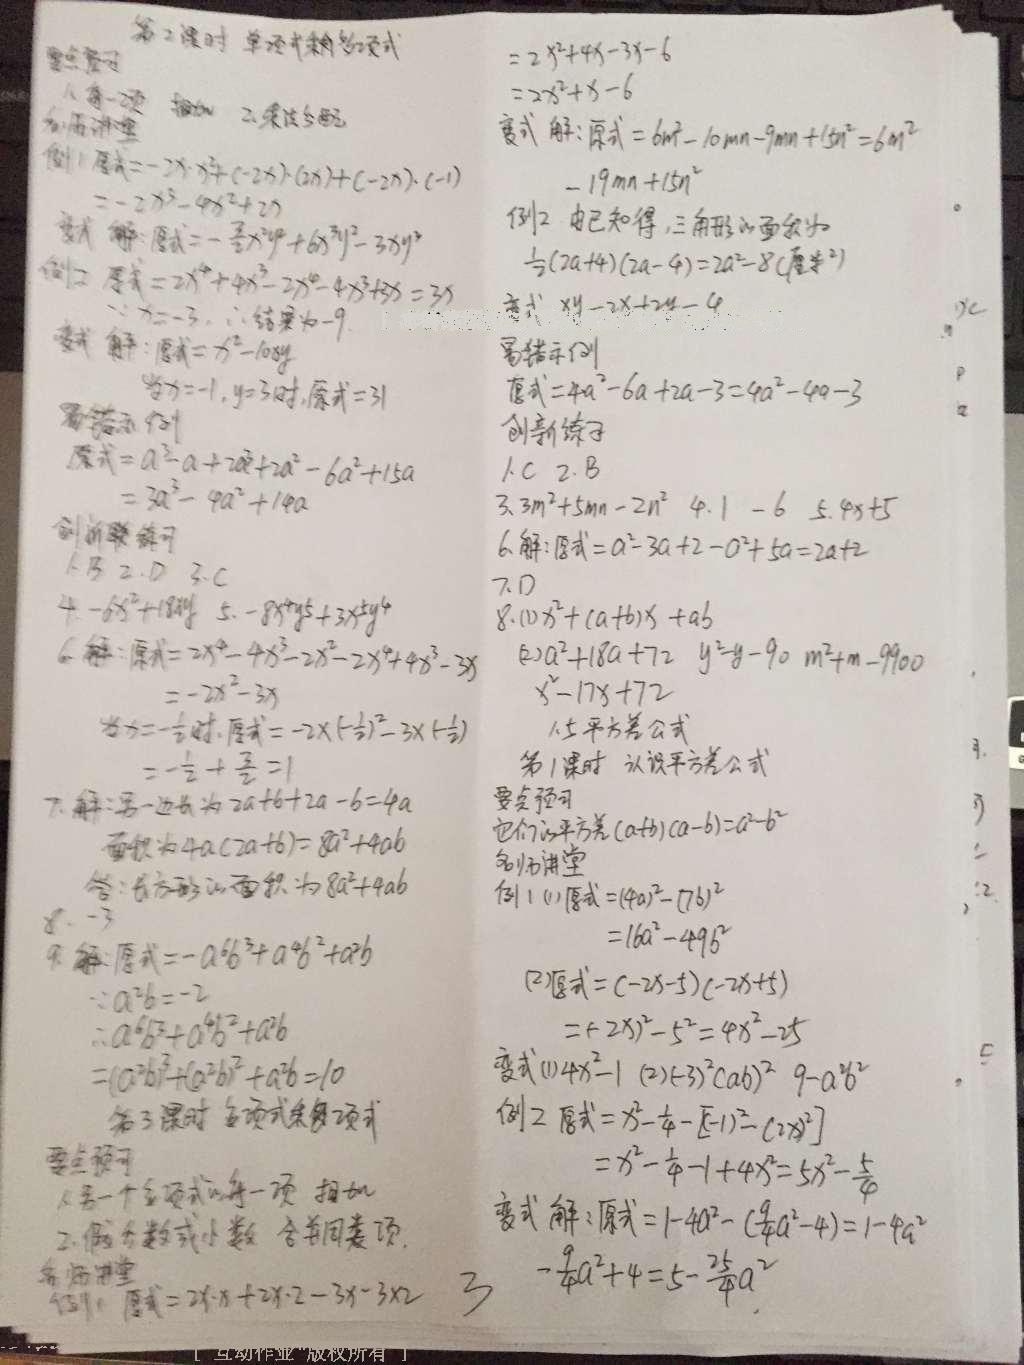 第2课时 单项式乘多项式
要点预习
1.每一项 相加 2.乘法分配
名师讲堂
例1 原式=-2x·x²+(-2x)·(2x)+(-2x)·(-1)
=-2x³-4x²+2x
变式 解:原式=-x²y⁴+6x³y²-3xy³
例2 原式=2x⁴+4x³-2x⁴-4x³+3x=3x
∵x=-3,∴结果为-9.
变式 解:原式=x²-10xy
当x=-1,y=3时,原式=31
易错示例
原式=a³-a+2a³+2a²-6a²+15a
=3a³-4a²+14a
创新练习
1.B 2.D 3.C
4.-6x²+18xy 5.-8x⁴y⁵+3x⁵y⁴
6.解:原式=2x⁴-4x³-2x²-2x⁴+4x³-3x
=-2x²-3x
当x=-1/2时,原式=-2×(-1/2)²-3×(-1/2)
=-1/2+3/2=1
7.解:另一边长为2a+b+2a-b=4a
面积为4a(2a+b)=8a²+4ab
答:长方形的面积为8a²+4ab
8.-3
9.解:原式=-a⁶b³+a⁴b²+a²b
∵a²b=-2
∴a⁶b³+a⁴b²+a²b
=(a²b)³+(a²b)²+a²b=10
第3课时 多项式乘多项式
要点预习
1.另一个多项式的每一项 相加
2.假分数或小数 合并同类项.
名师讲堂
例1 原式=2x·x+2x·2-3x-3×2
3
=2x²+4x-3x-6
=2x²+x-6
变式 解:原式=6m²-10mn-9mn+15n²=6m²
-19mn+15n²
例2 由已知得,三角形的面积为
1/2(2a+4)(2a-4)=2a²-8(厘米²)
变式 xy-2x+2y-4
易错示例
原式=4a²-6a+2a-3=4a²-4a-3
创新练习
1.C 2.B
3.3m²+5mn-2n² 4.1 -6 5.4x+5
6.解:原式=a²-3a+2-a²+5a=2a+2
7.D
8.(1)x²+(a+b)x+ab
(2)a²+18a+72 y²-y-90 m²+m-9900
x²-17x+72
1.5平方差公式
第1课时 认识平方差公式
要点预习
它们的平方差(a+b)(a-b)=a²-b²
名师讲堂
例1(1)原式=(4a)²-(7b)²
=16a²-49b²
(2)原式=(-2x-5)(-2x+5)
=(-2x)²-5²=4x²-25
变式(1)4x²-1 (2)(-3)²(ab)² 9-a²b²
例2 原式=x²-1/4-[(-1)²-(2x)²]
=x²-1/4-1+4x²=5x²-5/4
变式 解:原式=1-4a²-(9/4a²-4)=1-4a²
-9/4a²+4=5-25/4a².
[ 互动作业"版权所有 ]